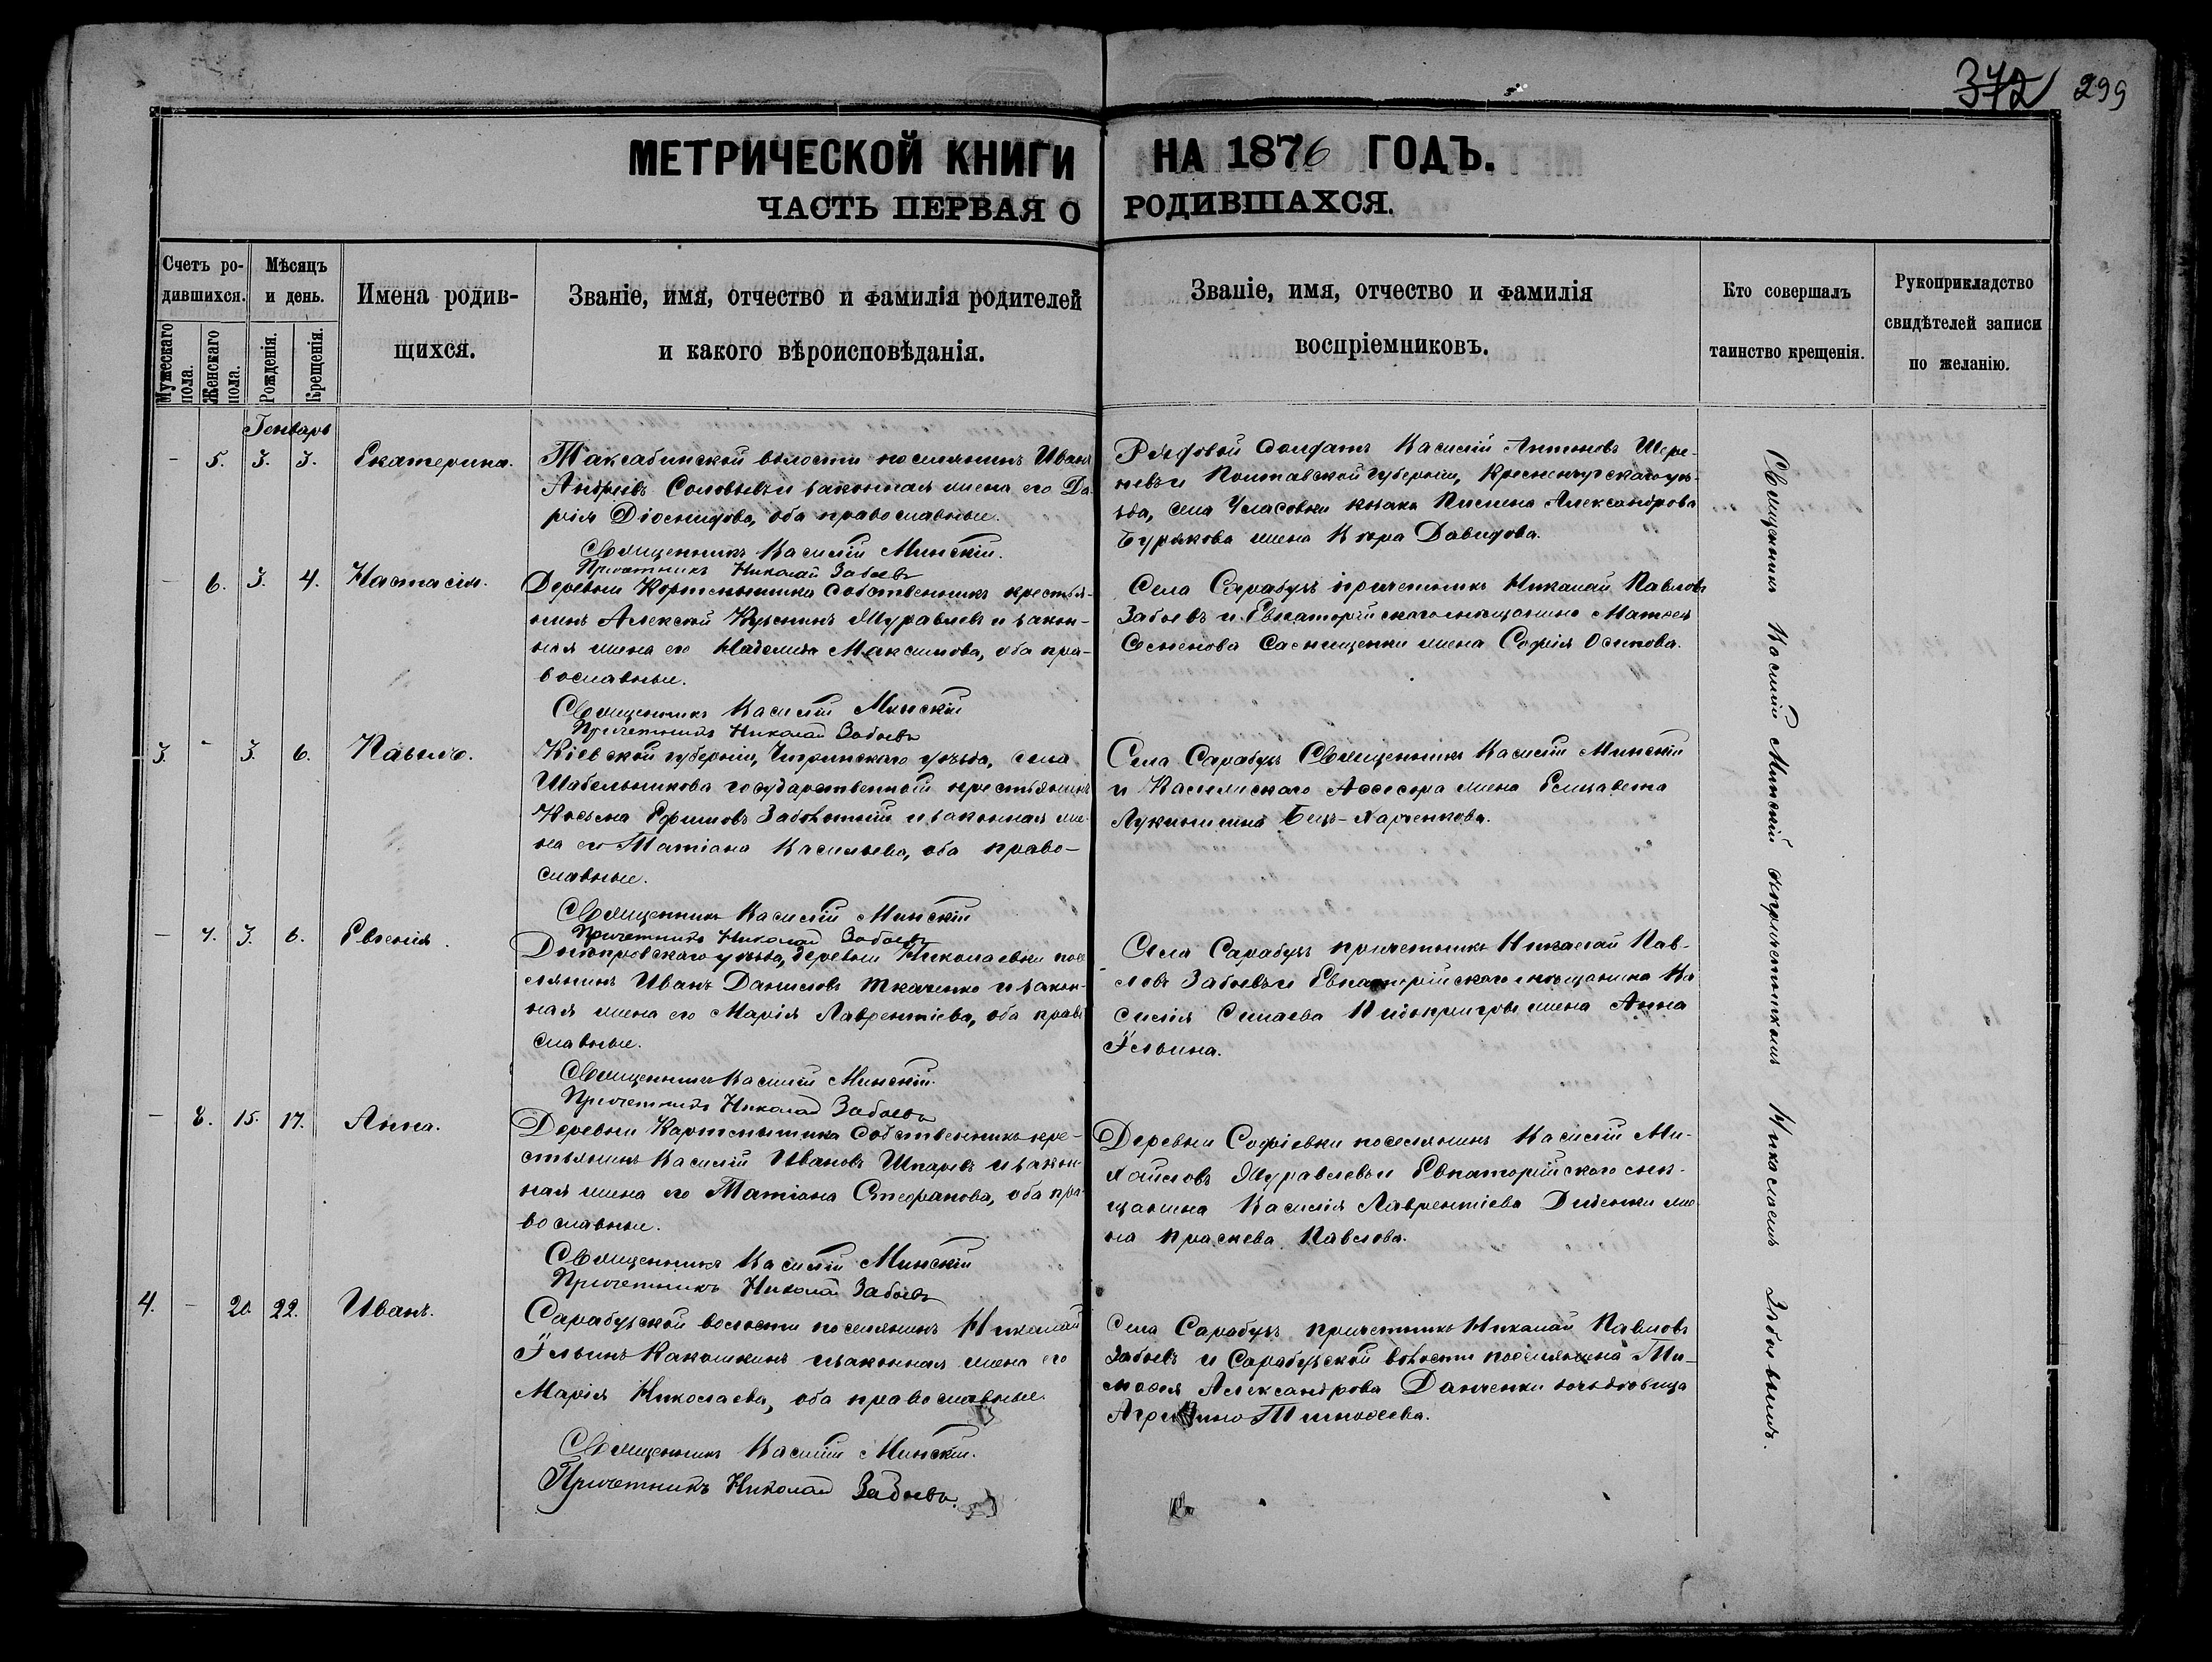 372 299
МЕТРИЧЕСКОЙ КНИГИ НА 1876 ГОДЪ.
ЧАСТЬ ПЕРВАЯ О РОДИВШАХСЯ.
Счетъ ро-
дившихся.
Мужескаго пола.
Женскаго пола.
Мѣсяцъ
и день.
Рожденія.
Крещенія.
Имена родив-
шихся.
Званіе, имя, отчество и фамилія родителей
и какого вѣроисповѣданія.
Званіе, имя, отчество и фамилія
воспріемниковъ.
Кто совершалъ
таинство крещенія.
Рукоприкладство
свидѣтелей записи
по желанію.
Генварь
- 5. 3. 3. Екатерина.
Таксабинской волости поселянинъ Иванъ
Андреевъ Соловьевъ и законная жена его Да-
рія Діомидова, оба православные.
Священникъ Василій Минскій.
Причетникъ Николай Забоевъ
Рядовой Солдатъ Василій Антоновъ Шере-
невъ и Полтавской губерніи, Кременчугскаго уѣ-
зда, села козака Александрова
Бурякова жена Давидова.
- 6. 3. 4. Настасія.
Деревни собственникъ крестья-
нинъ Алексѣй Муравлевъ и закон-
ная жена его Максимова, оба пра-
вославные.
Священникъ Василій Минскій
Причетникъ Николай Забоевъ
Села Сарабузъ причетникъ Николай Павловъ
Забоевъ и Евпаторійскаго мѣщанина Матѳея
Семенова жена Софія Осипова.
3. - 3. 6. Павелъ.
Кіевской губерніи, Чигринскаго уѣзда, села
Шабельникова государственный крестьянинъ
Косьма Ефимовъ Заболотній и законная же-
на его Татіана Васильева, оба право-
славные.
Священникъ Василій Минскій
Причетникъ Николай Забоевъ
Села Сарабузъ Священникъ Василій Минскій
и Ассесора жена Елисавета
Лукинишна Бецъ-Харченкова.
- 7. 3. 6. Евгенія.
Днѣпровскаго уѣзда, деревни Николаевки посе-
лянинъ Иванъ Даниловъ Ткаченко и закон-
ная жена его Марія Лаврентіева, оба право
славные.
Священникъ Василій Минскій.
Причетникъ Николай Забоевъ
Села Сарабузъ причетникъ Николай Пав-
ловъ Забоевъ и Евпаторійскаго мѣщанина Ва
силія жена Анна
Ильина.
- 8. 15. 17. Анна.
Деревни собственникъ кре-
стьянинъ Василій Ивановъ и закон-
ная жена его Татіана Стефанова, оба пра-
вославные.
Священникъ Василій Минскій
Причетникъ Николай Забоевъ
Деревни Софіевки поселянинъ Василій Ми-
хайловъ Муравлевъ и Евпаторійскаго мѣ-
щанина Василія Лаврентіева Диденки же
на Праскева Павлова.
4. - 20. 22. Иванъ.
Сарабузской волости поселянинъ Николай
Ильинъ Какошкинъ и законная жена его
Марія Николаева, оба православные.
Священникъ Василій Минскій.
Причетникъ Николай Забоевъ.
Села Сарабузъ причетникъ Николай Павловъ
Забоевъ и Сарабузской волости поселянина Ти-
моѳея Александрова Данченки дочь дѣвица
Тимоѳеева.
Священникъ Василій Минскій съ причетникомъ Николаемъ Забоевымъ.